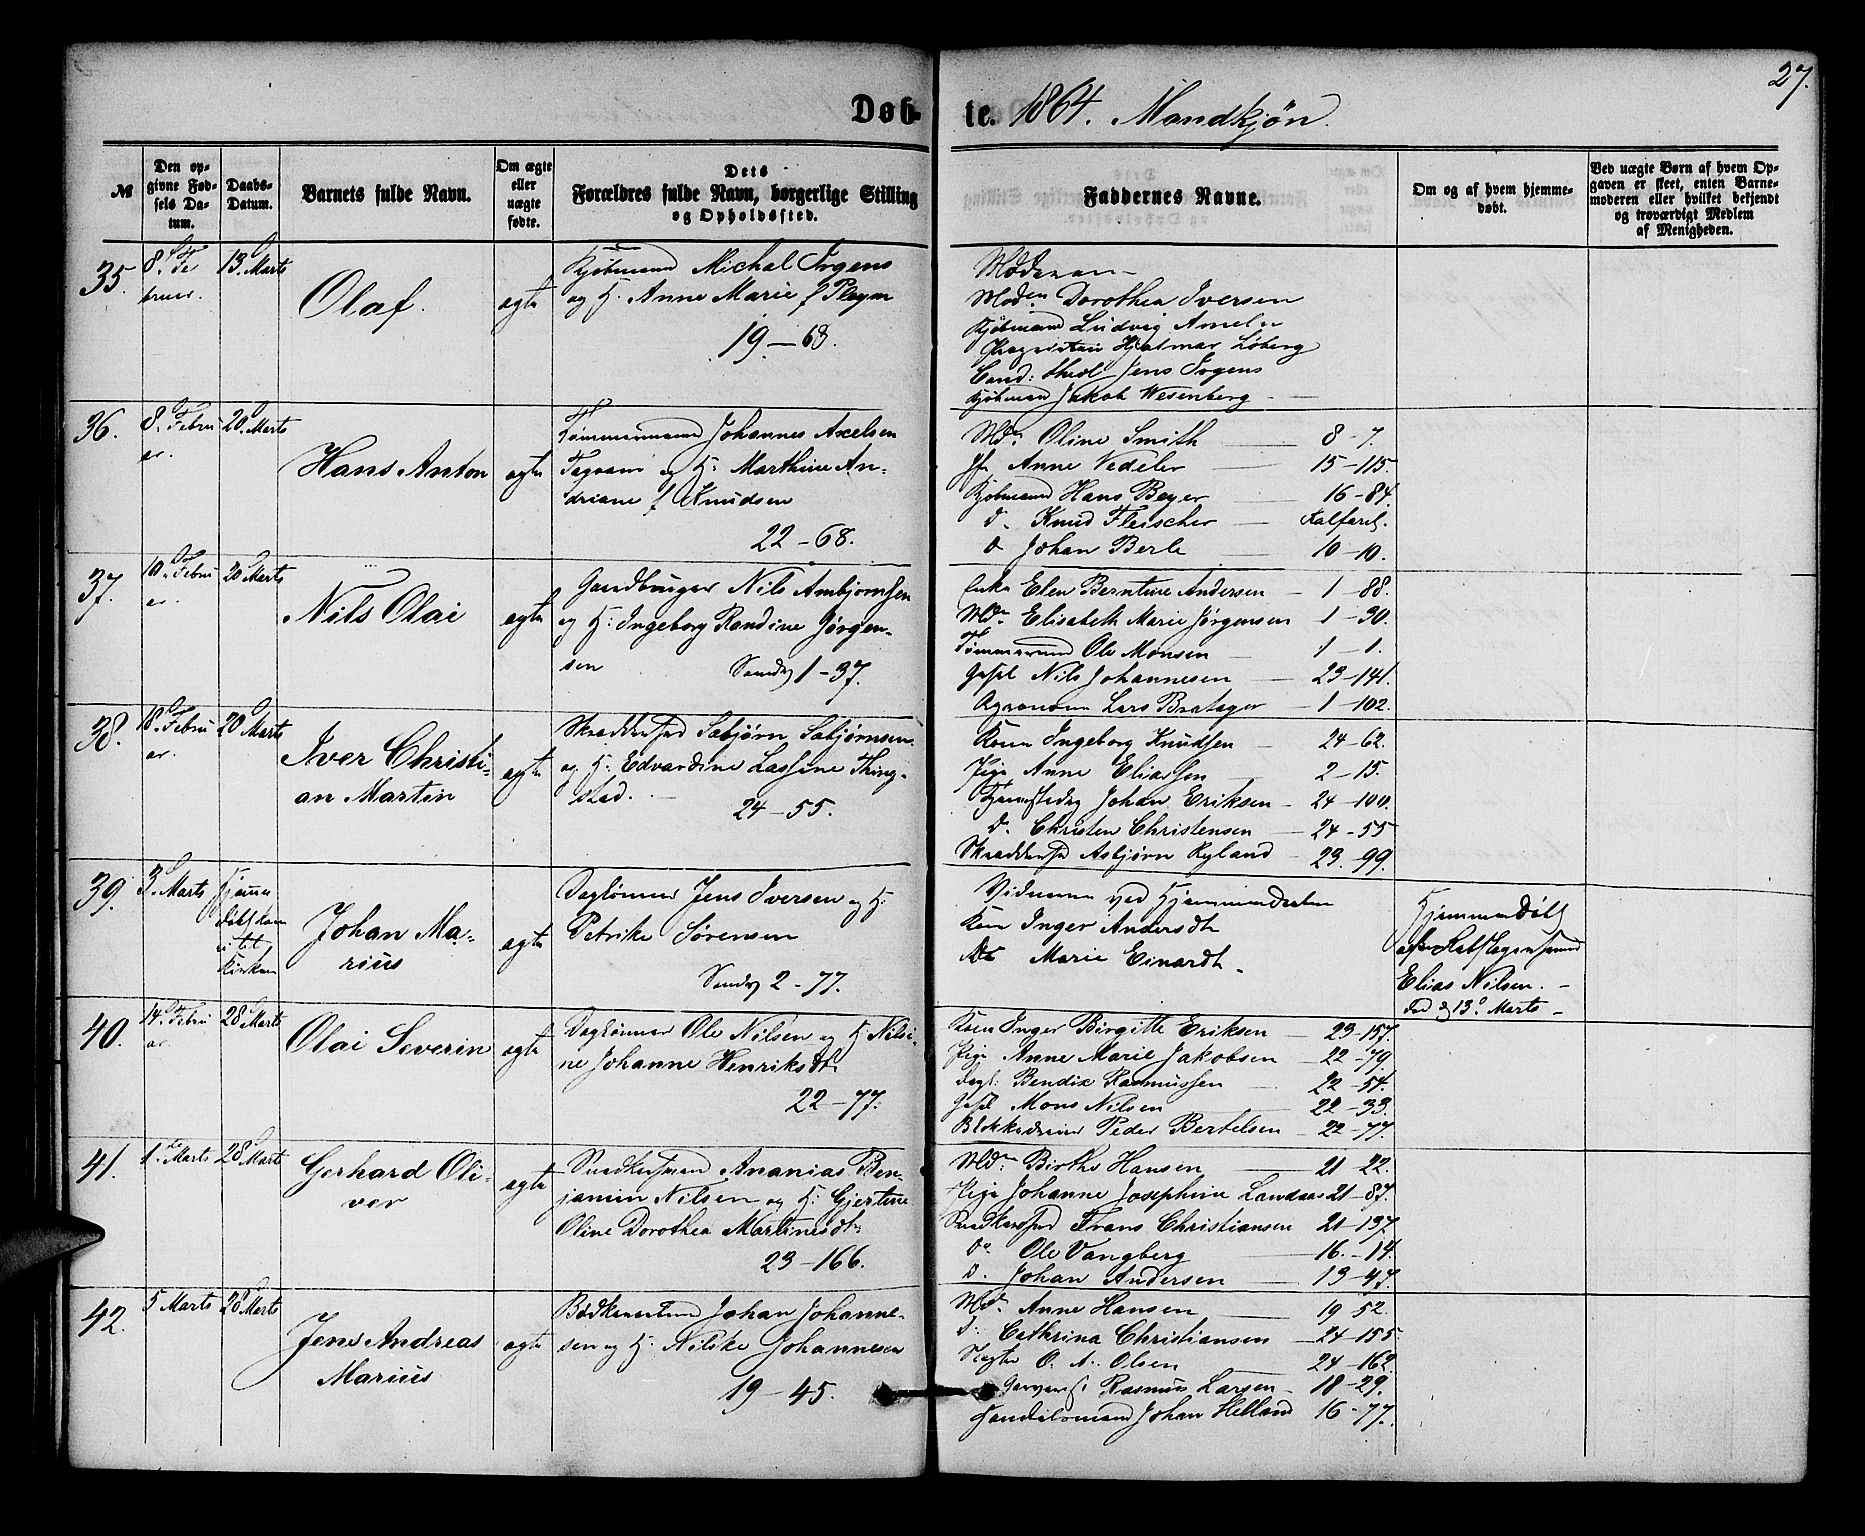 27.
Døb-te. 1864. Mandkjøn.
№
Den opgivne Fødsels Datum.
Daabs-Datum.
Barnets fulde Navn.
Om ægte eller uægte fødte.
Dets Forældres fulde Navn, borgerlige Stilling og Opholdssted.
Faddernes Navne.
Om og af hvem hjemmedøbt.
Ved uægte Børn af hvem Opgaven er skeet, enten Barnemoderen eller hvilket bekjendt og troværdigt Medlem af Menigheden.
35. 8. Fe 13. Marts
bruar.
Olaf.
ægte
Kjøbmand Michal Irgens
og H. Anne Marie f Pleym
19 - 68.
Moderen
Mad. Dorothea Iversen
Kjøbmand Ludvig
Hjalmar Löberg
Cand: theol Jens Irgens
Kjøbmand Jakob Wesenberg
36. 8. Febru 20. Marts
ar.
Hans Anton
ægte
Tømmermand Johannes Axelsen
og H. Marthine An-
driane f Knudsen
22 - 68.
Md. Oline Smith 8 - 7.
Jfr. Anne Vedeler 15 - 115.
Kjøbmand Hans Beyer 16 - 84.
D. Knud Fleischer Kalfaret.
D Johan Berle 10 - 10.
37. 10. Febru 20 Marts
ar.
Nils Olai
ægte
Gaardbruger Nils Anbjørnsen
og H. Ingeborg Randine Jørgen-
sen Sandv 1 - 37.
Enke Elen Berntine Andersen 1 - 88.
Md. Elisabeth Marie Jørgensen 1 - 30.
Tømmermand Ole Monsen 1 - 1.
Gesel Nils Johannesen 23 - 141.
Agronom Lars Bratager 1 - 102.
38. 18. Febru 20 Marts
ar.
Iver Christi-
an Martin
ægte
Skræddersvd Asbjørn Asbjørnsen
og H. Edvardine Lassine Thing-
stad.
24 - 55.
Kone Ingeborg Knudsen 24 - 62.
Pige Anne Eliassen 2 - 15.
Johan Eriksen 24 - 100.
D. Christen Christensen 24 - 55
Skræddersvd Asbjørn Ryland 23 - 99.
39. 3. Marts Hjemme
døbt kom
ei til
Kirken
Johan Ma-
rius
ægte
Daglønner Jens Iversen og H.
Petrike Sørensen
Sandv 2 - 77.
Vidnerne ved Hjemmedaaben
Kone Inger Andersdt
Do Marie Einardt
Hjemmedøbt
af
Elias Nilsen.
d 13. Marts
40. 14. Febru 28 Marts
ar.
Olai Severin
ægte
Daglønner Ole Nilsen og H. Nilsi-
ne Johanne Henriksdt.
22 - 77.
Kone Inger Birgitte Eriksen 23 - 157.
Pige Anne Marie Jakobsen 22 - 79.
Dagl: Bendix Rasmussen 22 - 54.
Gesel Mons Nilsen 22 - 33.
Blokkedreier Peder Bertelsen 22 - 77.
41. 1. Marts 28 Marts
Gerhard Oli-
ver
ægte
Snedkersvend Ananias Ben-
jamin Nilsen og H. Gjertine
Oline Dorothea Martinusdt.
23 - 166.
Md. Birthe Hansen 21 - 22.
Pige Johanne Josephine Landaas 21 - 87.
Snedkersvd Frans Christiansen 21 - 137.
Do Ole Vangberg 16. - 14.
D. Johan Andersen 13 - 47.
42. 5 Marts 28 Marts
Jens Andreas
Marius
ægte
Bødkersvend Johan Johanne-
sen og H. Nilske Johannesen
19 - 45.
Md. Anne Hansen 19 - 52.
D. Cathrina Christiansen 24 - 155
O. A. Olsen 24 - 162.
Rasmus Larsen 18 - 29.
Handelsmand Johan Helland 16 - 77.